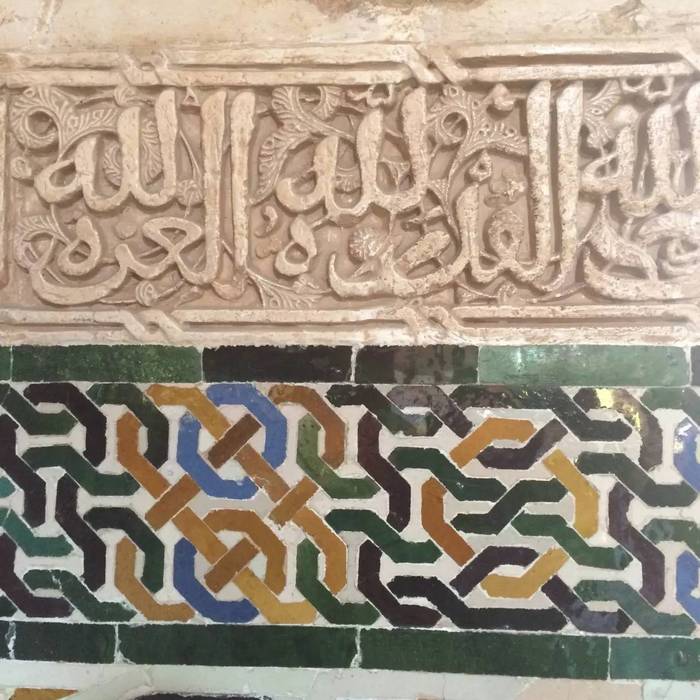 لله القدرة لله العزة لله